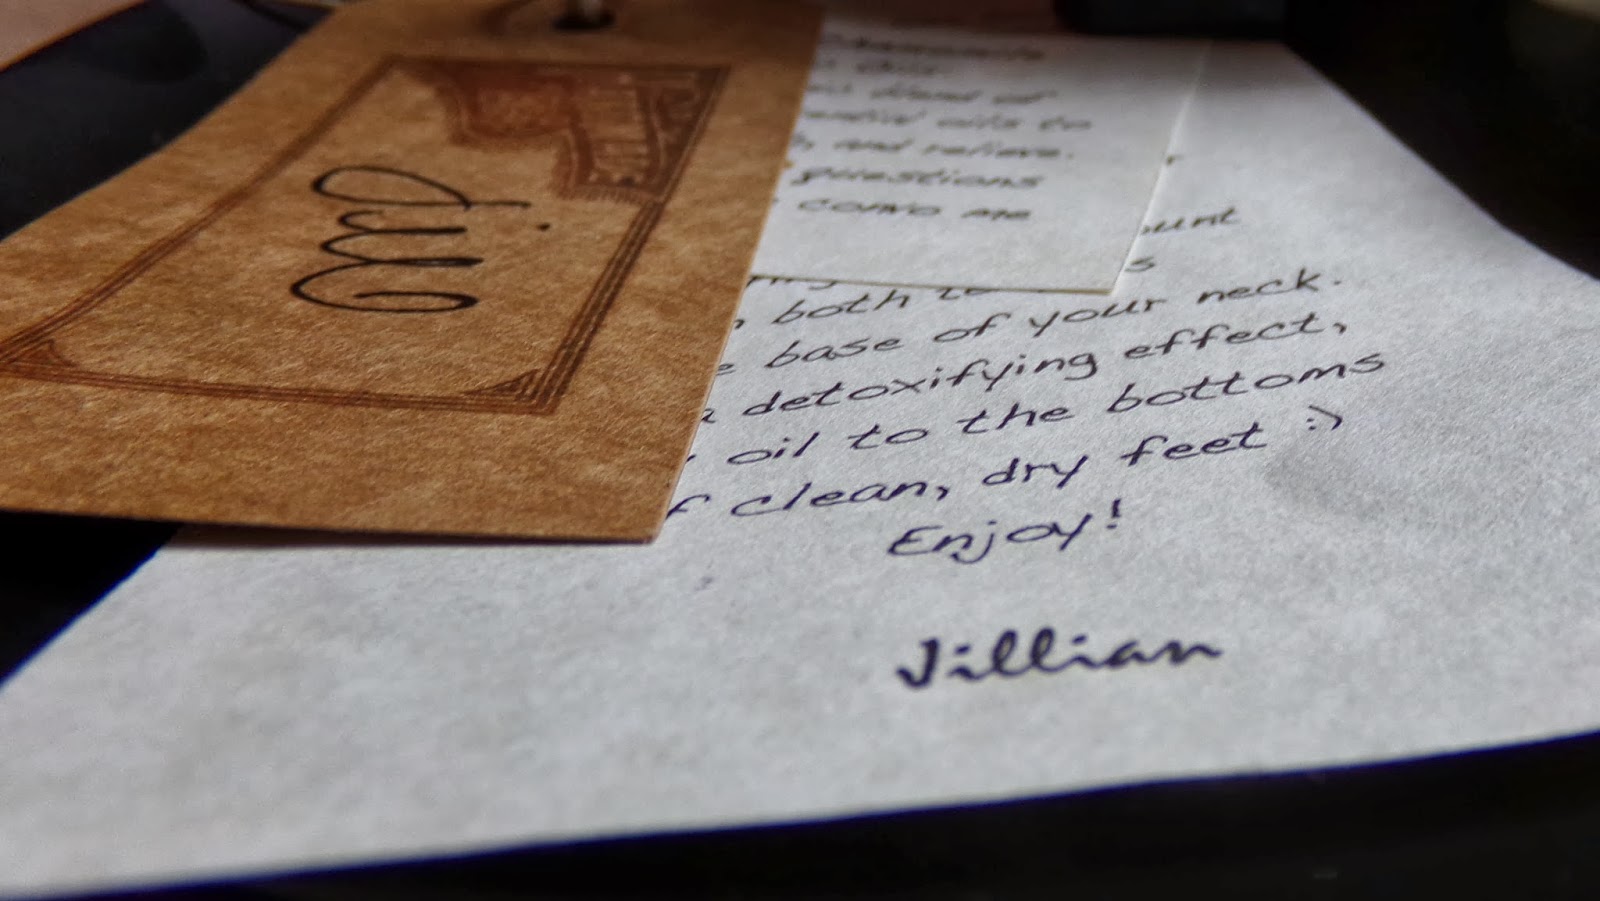 blend of
oils to
and relieve.
questions
convo me
both
base of your neck.
detoxifying effect,
oil to the bottoms
clean, dry feet :)
Enjoy!
Jillian